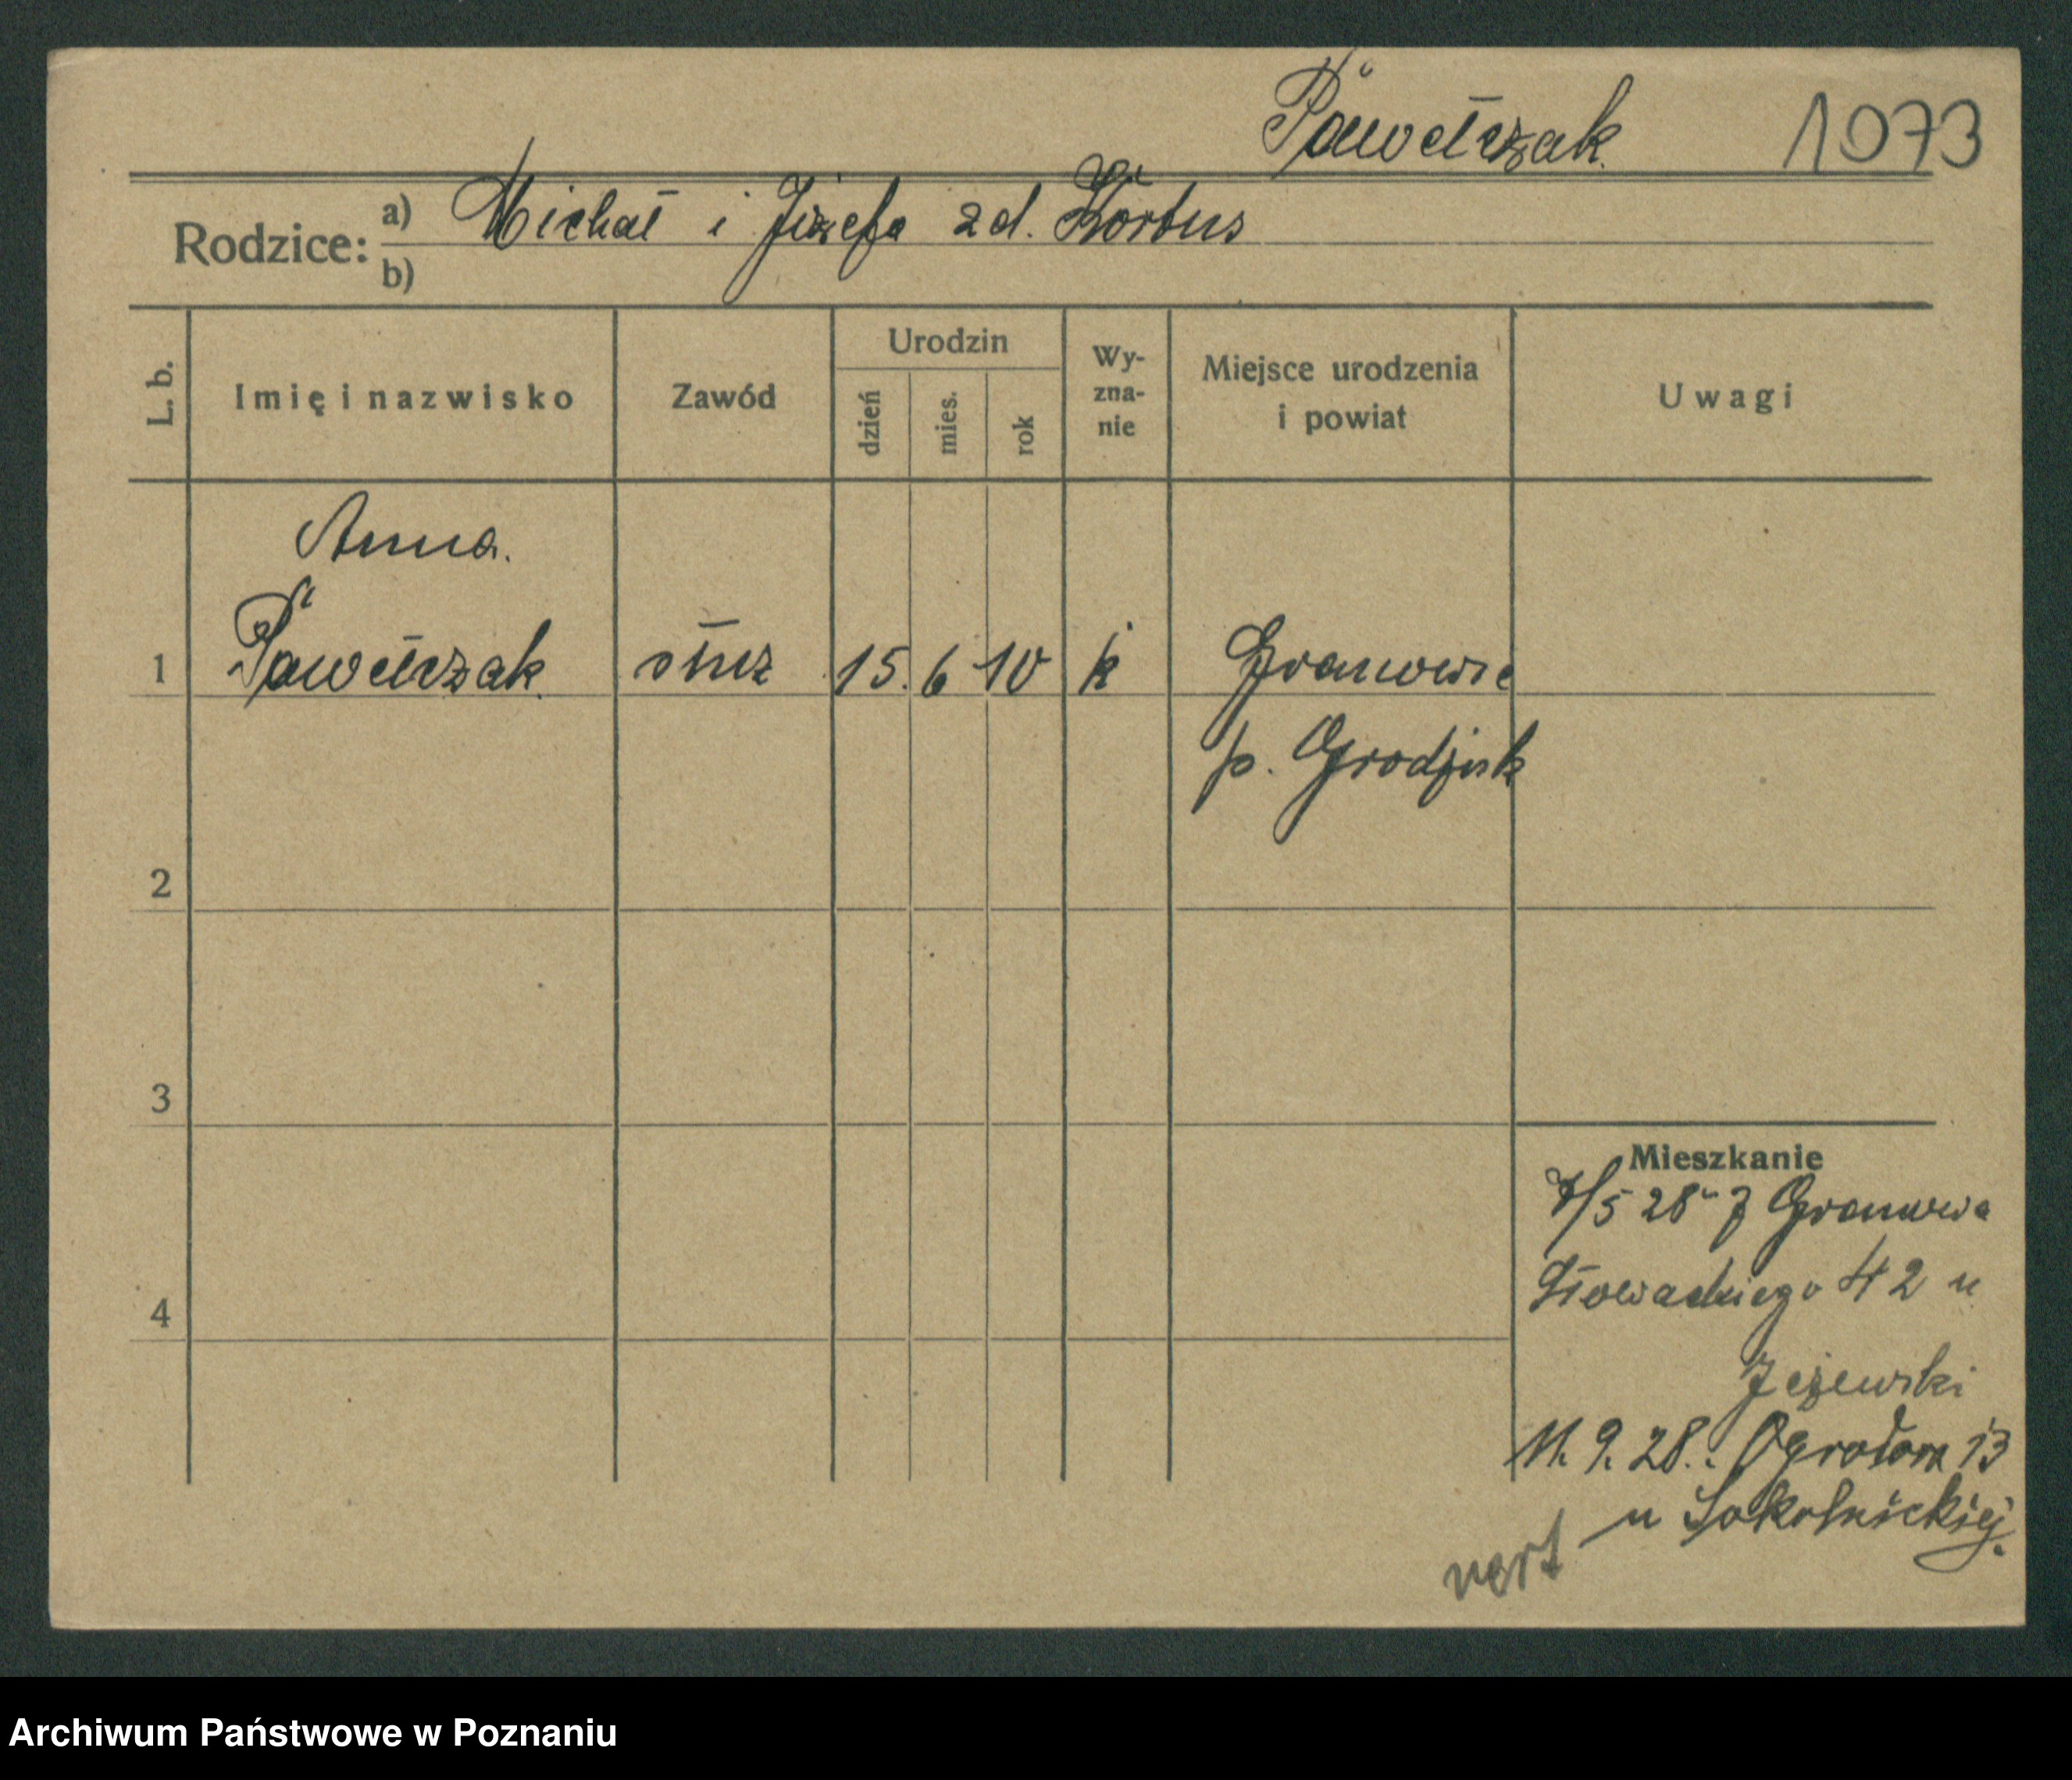 Pawełczak 1073
Rodzice: a) Michał i Józefa zd. Körbus
b)
L. b. Imię i nazwisko Zawód Urodzin dzień mies. rok Wy-zna-nie Miejsce urodzenia i powiat Uwagi
Anna.
1 Pawełczak służ 15. 6 10 k Granowie
p. Grodzisk
2
3
4
Mieszkanie
7/5 28 z Granowa
Słowackiego 42 u
Jeżewski
11. 9. 28. Ogrodowa 13
u Sokolnickiej.
vert
Archiwum Państwowe w Poznaniu